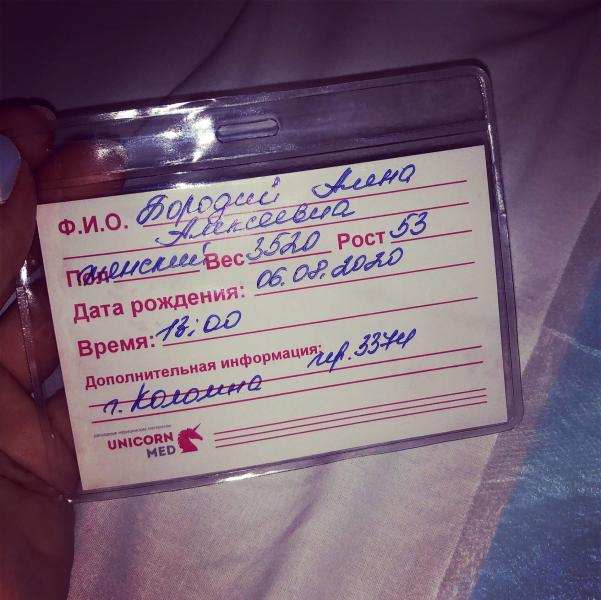 Ф.И.О. Бородий Алина
Алексеевна
Пол женский Вес 3520 Рост 53
Дата рождения: 06.08.2020
Время: 13:00
Дополнительная информация:
г. Коломна
UNICORN
MED